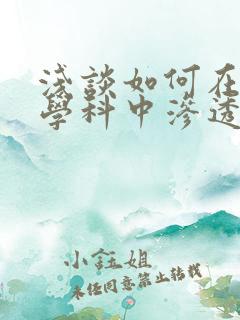 浅談如何在
學科中滲透
小鈺姐
未经同意禁止转载